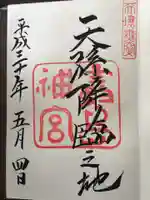 天孫降臨之地
神宮
平成三十年五月四日